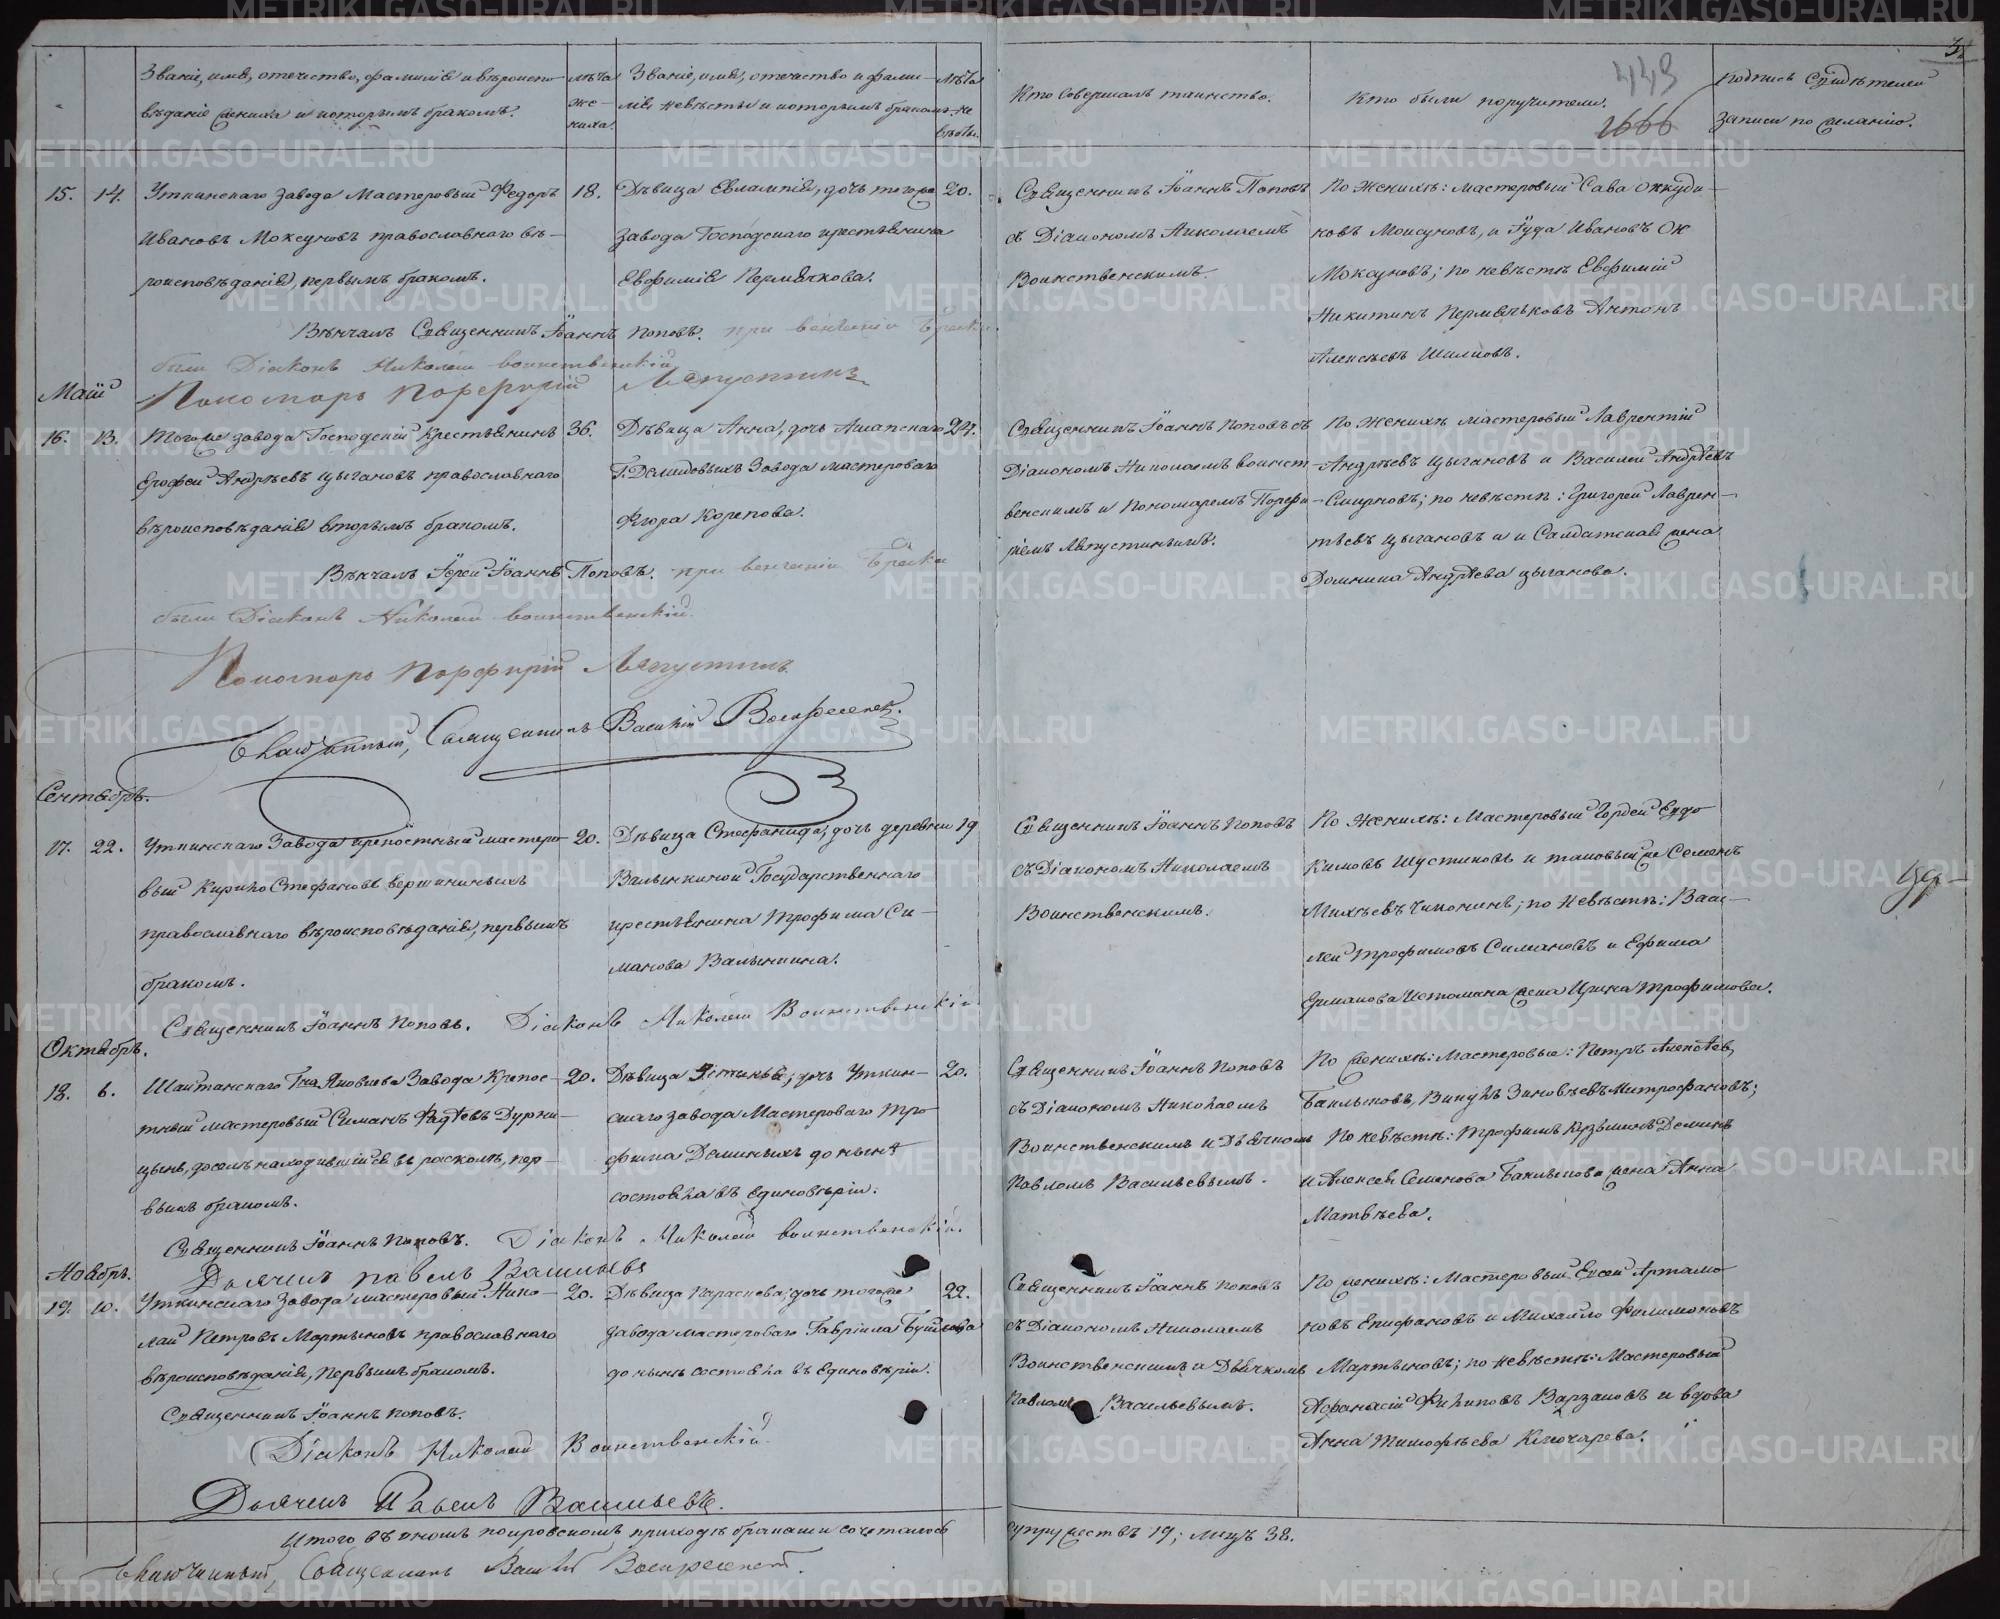 Званіе, имя, отечество, фамилія и вѣроиспо-
вѣданіе жениха и которымъ бракомъ.
лѣта
же-
ниха.
Званіе, имя, отечество и фами-
лія невѣсты и которымъ бракомъ.
лѣта
не
вѣсты.
Кто совершалъ таинство.
Кто были поручители.
449
1666
Подпись Свидѣтелей
записи по желанію.
15. 14. Уткинскаго завода Мастеровый Федоръ
Ивановъ Моксуновъ православнаго вѣ-
роисповѣданія, первымъ бракомъ.
18.
Дѣвица Евлампія, дочь тогоже
завода Господскаго крестьянина
Евфимія Пермячкова.
20.
Священникъ Іоаннъ Поповъ
съ Діакономъ Николаемъ
Воинственскимъ.
По Женихѣ: мастеровый Сава
Моксуновъ, и Іуда Ивановъ
Моксуновъ; по невѣстѣ Евфимій
Никитинъ Пермячковъ Антонъ
Алексѣевъ Шилковъ.
Вѣнчалъ Священникъ Іоаннъ Поповъ. при венчаніи брака
были Діаконъ Николай воинственскій
Пономарь Порфирій Августинъ
Маій
16. 13. Тогоже завода Господскій Крестьянинъ
Ерофей Андрѣевъ Цыгановъ православнаго
вѣроисповѣданія вторымъ бракомъ.
36.
Дѣвица Анна, дочь Ашапскаго
Г. Демидовыхъ Завода мастероваго
Егора Корепова.
24.
Священникъ Іоаннъ Поповъ съ
Діакономъ Николаемъ воинст-
венскимъ и Пономаремъ Порфи-
ріемъ Августинымъ.
По Женихѣ мастеровый Лаврентій
Андрѣевъ Цыгановъ и Василей Андрѣевъ
Смирновъ; по невѣстѣ: Григорей Лаврен-
тьевъ Цыгановъ а и Салдатская жена
Домника Андрѣева Цыганова.
Вѣнчалъ Іерей Іоаннъ Поповъ. при венчаніи брака
были Діаконъ Николай воинственскій
Пономарь Порфирій Августинъ
Благочинный, Священникъ Василій Воскресенск.
Сентябрь.
17. 22. Уткинскаго Завода крепостный мастеро-
вый Кирико Стефановъ Вершининыхъ
православнаго вѣроисповѣданія, первымъ
бракомъ.
20.
Дѣвица Стефанида, дочь деревни
Валынкиной Государственнаго
крестьянина Трофима Си-
манова Валынкина.
19
Священникъ Іоаннъ Поповъ
съ Діакономъ Николаемъ
Воинственскимъ.
По Женихѣ: Мастеровый Гордей Евдо
кимовъ Шустиковъ и таковый же Семенъ
Михѣевъ Чипонинъ; по Невѣстѣ: Васи-
лей Трофимовъ Симановъ и Ефима
Ермакова Истомина жена Ирина Трофимова.
Священникъ Іоаннъ Поповъ. Діаконъ Николай Воинственскій
Октябрь.
18. 6. Шайтанскаго Гна Яковлева Завода Крепос-
тный мастеровый Симанъ Фадѣевъ Дурни-
цынъ, доселѣ находившійся въ расколѣ, пер-
вымъ бракомъ.
20.
Дѣвица Устинья, дочь Уткин-
скаго завода Мастероваго Тро
фима Деминыхъ до нынѣ
состояла въ единовѣріи.
20.
Священникъ Іоаннъ Поповъ
съ Діакономъ Николаемъ
Воинственскимъ и Дьячкомъ
Павломъ Васильевымъ.
По женихѣ: Мастеровые: Петръ Алексѣевъ
Баклыковъ, Викулъ Зиновьевъ Митрофановъ;
По невѣстѣ: Трофимъ Кузьминъ Деминъ
и Алексея Семенова Баклыкова жена Анна
Матвѣева.
Священникъ Іоаннъ Поповъ. Діаконъ Николай воинственскій.
Дьячекъ Павелъ Васильевъ
Ноябрь.
19. 10. Уткинскаго Завода мастеровый Нико-
лай Петровъ Мартыновъ православнаго
вѣроисповѣданія, Первымъ бракомъ.
20.
Дѣвица Параскева, дочь тогоже
завода мастероваго Гавріила Бушуева
до нынѣ состояла въ единовѣріи.
22.
Священникъ Іоаннъ Поповъ
съ Діакономъ Николаемъ
Воинственскимъ и Дьячкомъ
Павломъ Васильевымъ.
По женихѣ: Мастеровый Евсей Артамо
новъ Епифановъ и Михайло Филимоновъ
Мартыновъ; по невѣстѣ: Мастеровый
Афанасій Филиповъ Варзаковъ и вдова
Анна Тимофѣева Ключарева.
Священникъ Іоаннъ Поповъ.
Діаконъ Николай Воинственскій
Дьячекъ Павелъ Васильевъ.
Итого въ ономъ покровскомъ приходѣ браками сочеталось
супружествъ 19; лицъ 38.
Благочинный, Священникъ Василій Воскресенск.
METRIKI.GASO-URAL.RU